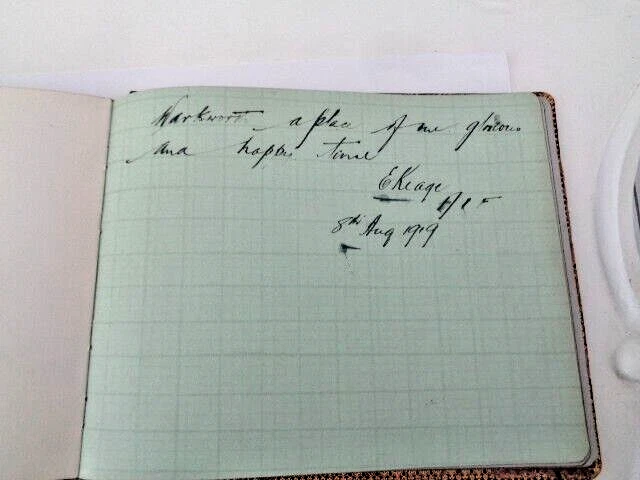 Warkworth a place of one glorious
and happy time
E Keage
8th Aug 1919